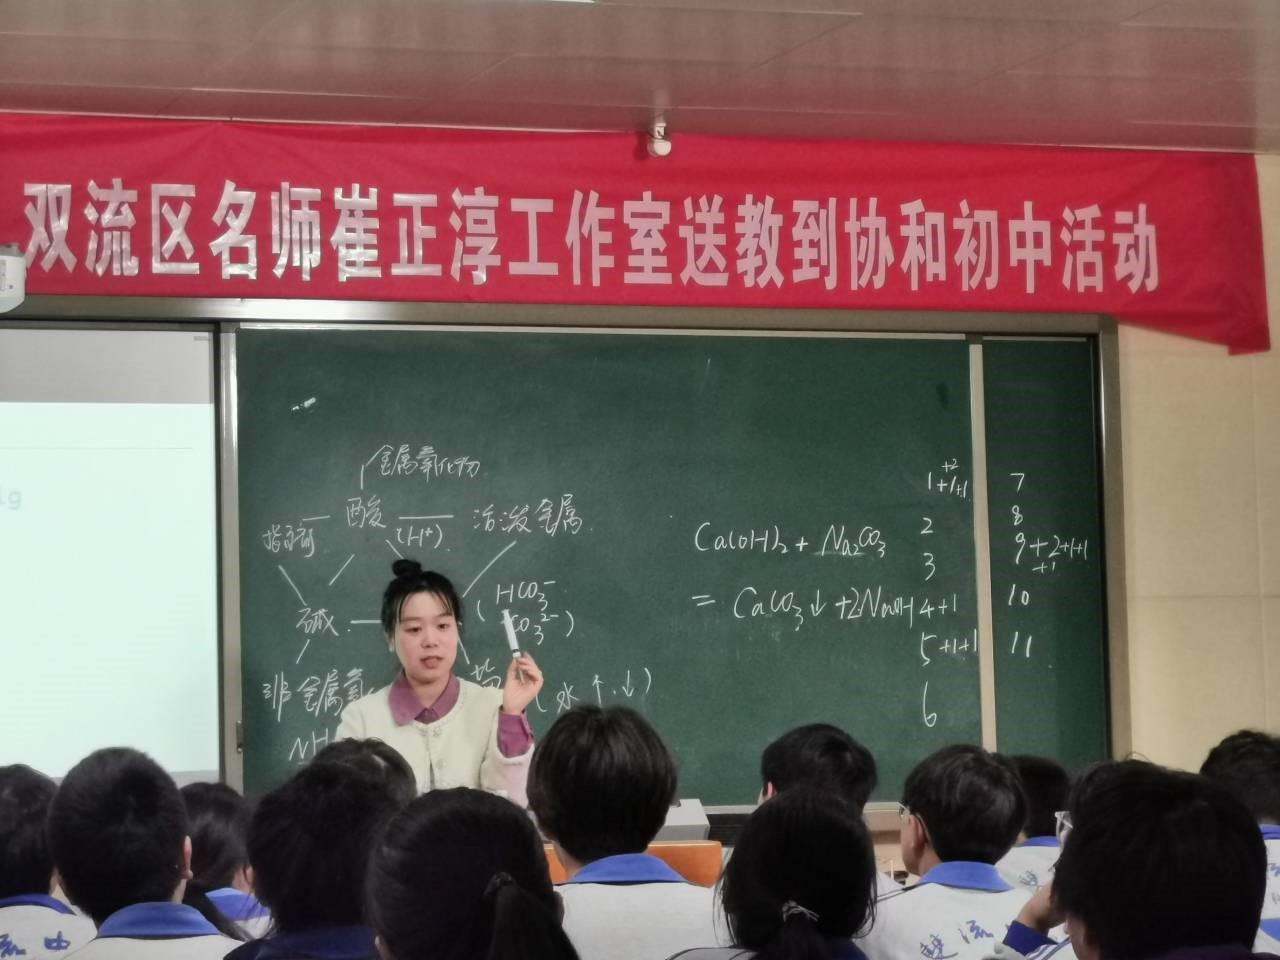 双流区名师崔正淳工作室送教到协和初中活动
金属氧化物
指示剂 — 酸 — 活泼金属
(H⁺)
碱 —
(HCO₃⁻
CO₃²⁻)
非金属氧
盐 (水↑.↓)
NH
Ca(OH)₂ + Na₂CO₃
= CaCO₃↓ +2NaOH
1+1+1
+2
2
3
4+1
5+1+1
6
7
8
9+2+1+1
+1
10
11